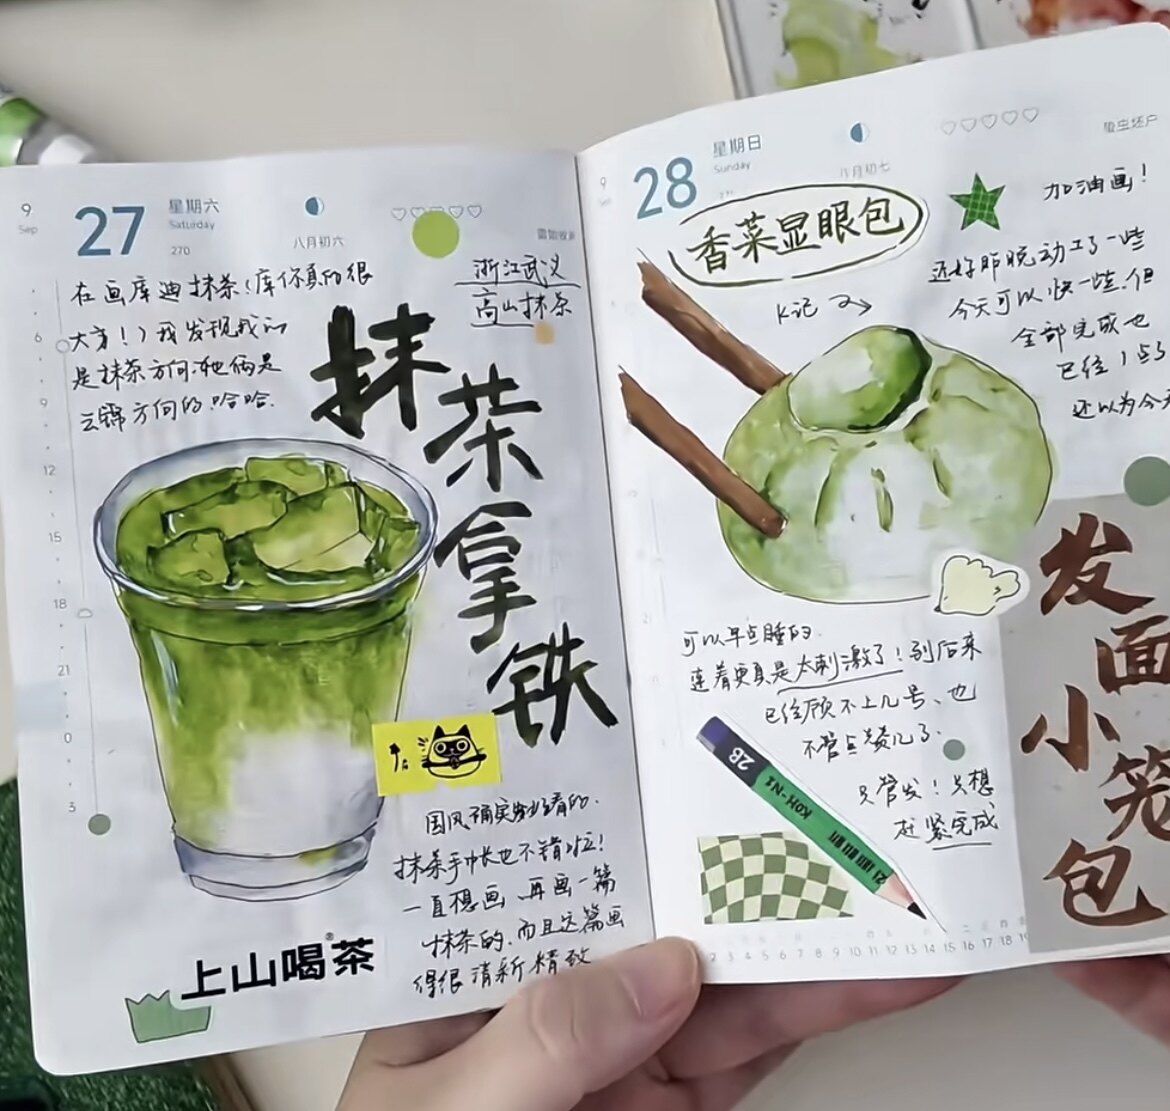 9
Sep
27
星期六
Saturday
270
八月初六
浙江武义
高山抹茶
在画库迪抹茶(库你真的很
大方!)我发现我们
是抹茶方向,她俩是
云锦方向的.哈哈.
抹茶拿铁
6
9
12
15
18
21
0
3
国风确实好看的.
抹茶手帐也不错哈!
一直想画、再画一篇
抹茶的.而且这篇画
得很清新精致
上山喝茶®
9
Sep
28
星期日
Sunday
八月初七
香菜显眼包
K记
加油画!
还好昨晚动工了一些
今天可以快一些.但
全部完成也
已经1点3
还以为今天
发面小笼包
可以早点睡的.
连着更真是太刺激了!到后来
已经顾不上几号、也
不管点赞几了.
只管发!只想
赶紧完成
21
2B
KOH-N1
2 3 4 5 6 7 8 9 10 11 12 13 14 15 16 17 18 19